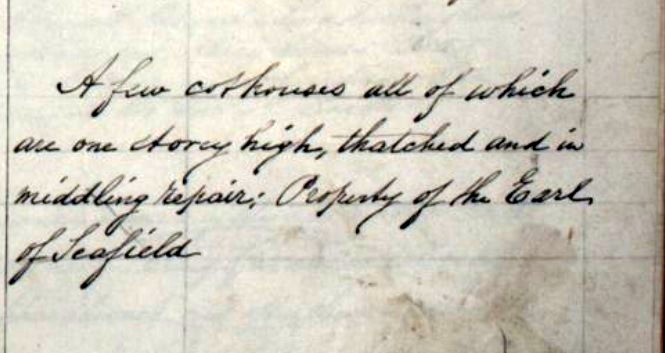 A few cothouses all of which
are one storey high, thatched and in
middling repair; Property of the Earl
of Seafield